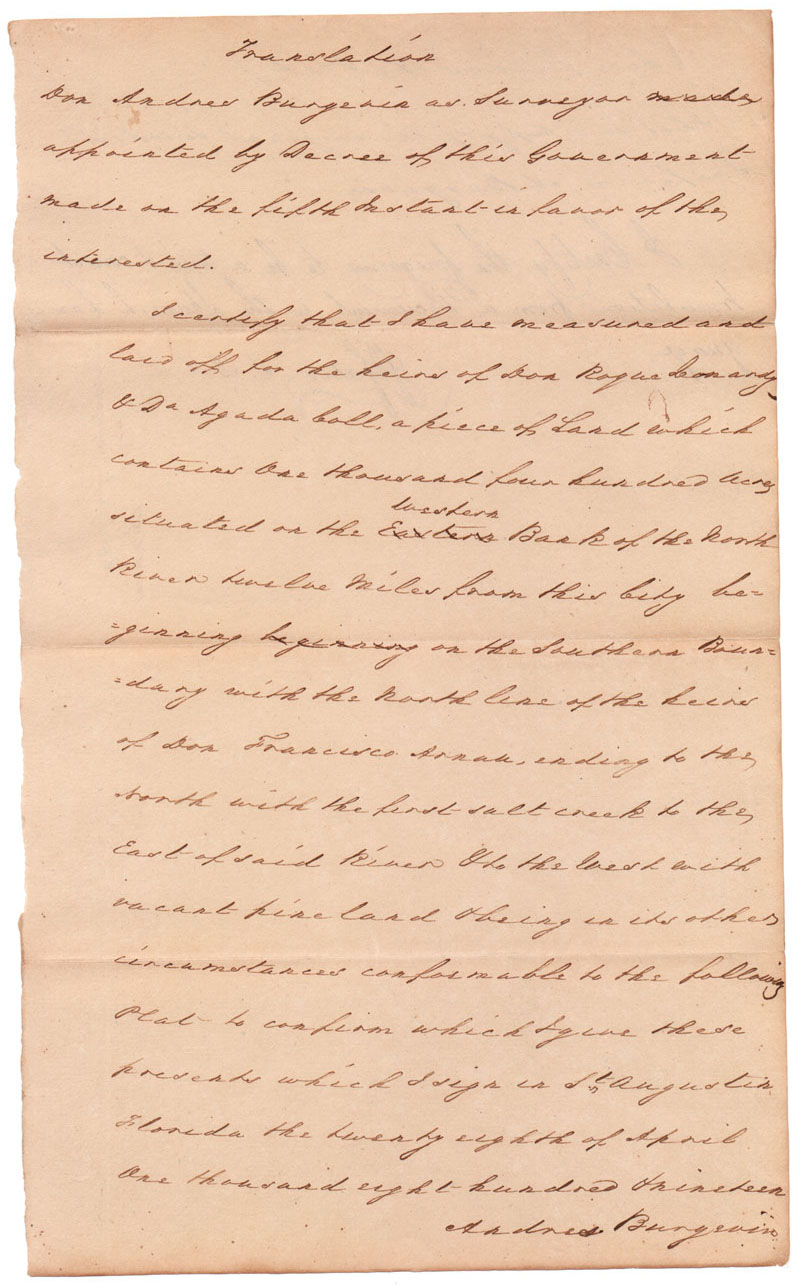 Translation
Don Andres Burgevin as Surveyor made
appointed by Decree of this Government
made on the fifth Instant in favor of the
interested.
I certify that I have measured and
laid off for the heirs of Don Rogue Leonardy
& Da Agada Coll, a piece of Land which
contains One thousand four hundred Acres
Western
situated on the Eastern Bank of the North
River twelve Miles from this City be=
=ginning beginning on the Southern Boun=
=dary with the North line of the heirs
of Don Francisco Arnau, ending to the
North with the first salt creek to the
East of said River & to the West with
vacant pine land & being in its other
circumstances conformable to the following
Plat to confirm which I give these
presents which I sign in St Augustin
Florida the twenty eighth of April
One thousand eight hundred & nineteen
Andres Burgevin